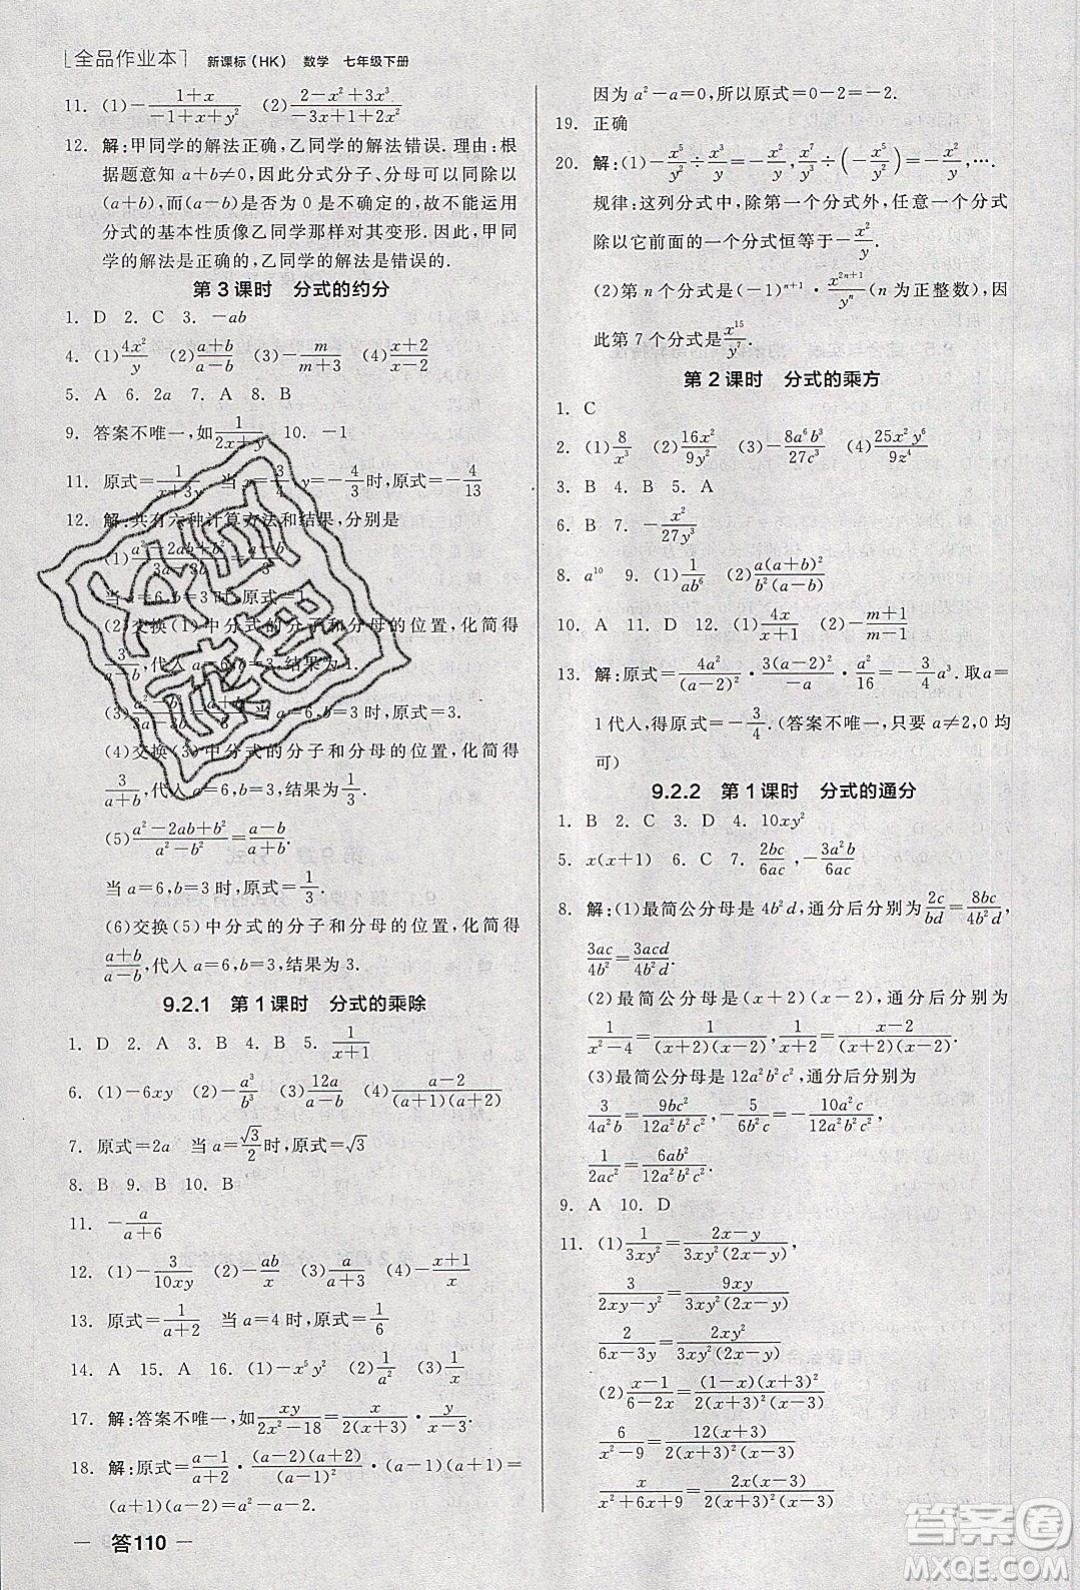 [全品作业本] 新课标(HK) 数学 七年级下册
11. (1)-(1+x)/(-1+x+y²) (2)(2-x²+3x³)/(-3x+1+2x²)
12. 解:甲同学的解法正确,乙同学的解法错误.理由:根
据题意知a+b≠0,因此分式分子、分母可以同除以
(a+b),而(a-b)是否为0是不确定的,故不能运用
分式的基本性质像乙同学那样对其变形.综上,甲同
学的解法是正确的,乙同学的解法是错误的.
第3课时 分式的约分
1. D 2. C 3. -ab
4. (1)4x²/y (2)(a+b)/(a-b) (3)-m/(m+3) (4)(x+2)/(x-2)
5. A 6. 2a 7. A 8. B
9. 答案不唯一,如1/(2x+y) 10. -1
11. 原式=1/(x+3y) 当x=-1,y=-4/3时,原式=-4/13
12. 解:共有六种计算方法和结果,分别是
(1)(a²-2ab+b²)/(3a-3b)=(a-b)/3,
当a=6,b=3时,原式=1.
(2)交换(1)中分式的分子和分母的位置,化简得
3/(a-b),代入a=6,b=3,结果为1.
(3)(a²-b²)/(3a-3b)=(a+b)/3,当a=6,b=3时,原式=3.
(4)交换(3)中分式的分子和分母的位置,化简得
3/(a+b),代入a=6,b=3,结果为1/3.
(5)(a²-2ab+b²)/(a²-b²)=(a-b)/(a+b),
当a=6,b=3时,原式=1/3.
(6)交换(5)中分式的分子和分母的位置,化简得
(a+b)/(a-b),代入a=6,b=3,结果为3.
9.2.1 第1课时 分式的乘除
1. D 2. A 3. B 4. B 5. 1/(x+1)
6. (1)-6xy (2)-a³/b³ (3)12a/(a-b) (4)(a-2)/((a+1)(a+2))
7. 原式=2a 当a=√3/2时,原式=√3
8. B 9. B 10. B
11. -a/(a+6)
12. (1)-3/(10xy) (2)-ab/x (3)a/(a+3) (4)-(x+4)/x
13. 原式=1/(a+2) 当a=4时,原式=1/6
14. A 15. A 16. (1)-x⁵y (2)1/a² (3)1/x
17. 解:答案不唯一,如xy/(2x²-18)=x/(2(x+3))·y/(x-3).
18. 解:原式=(a-1)/(a+2)·((a-2)(a+2))/(a-1)²·(a+1)(a-1)=
(a+1)(a-2)=a²-a-2.
— 答110 —
因为a²-a=0,所以原式=0-2=-2.
19. 正确
20. 解:(1)-x⁵/y²÷x³/y=-x²/y,x⁷/y³÷(-x⁵/y²)=-x²/y,….
规律:这列分式中,除第一个分式外,任意一个分式
除以它前面的一个分式恒等于-x²/y.
(2)第n个分式是(-1)ⁿ⁺¹·x²ⁿ⁺¹/yⁿ(n为正整数),因
此第7个分式是x¹⁵/y⁷.
第2课时 分式的乘方
1. C
2. (1)8/x³ (2)16x²/9y² (3)-8a⁶b³/27c³ (4)25x²y⁶/9z⁴
3. B 4. B 5. A
6. B 7. -x²/27y³
8. a¹⁰ 9. (1)1/ab⁶ (2)a(a+b)/(b²(a-b))
10. A 11. D 12. (1)4x/(x+1) (2)-(m+1)/(m-1)
13. 解:原式=4a²/(a-2)²·3(a-2)²/(-a)·a²/16=-3/4a³.取a=
1代入,得原式=-3/4.(答案不唯一,只要a≠2,0均
可)
9.2.2 第1课时 分式的通分
1. B 2. C 3. D 4. 10xy²
5. x(x+1) 6. C 7. 2bc/6ac,-3a²b/6ac
8. 解:(1)最简公分母是4b²d,通分后分别为2c/bd=8bc/4b²d,
3ac/4b²=3acd/4b²d.
(2)最简公分母是(x+2)(x-2),通分后分别为
1/(x²-4)=1/((x+2)(x-2)),x/(2-x)=-x(x+2)/((x+2)(x-2)).
(3)最简公分母是12a²b²c²,通分后分别为
3/4a²b=9bc²/12a²b²c²,-5/6b²c=-10a²c/12a²b²c²,
1/2ac²=6ab²/12a²b²c².
9. A 10. D
11. (1)1/(3x²y)=(2x-y)/(3x²y²(2x-y)),
3/(2xy-y²)=9xy/(3x²y²(2x-y)),
2/(6x²-3xy)=2xy²/(3x²y²(2x-y)).
(2)(x-1)/(6-2x)=(1-x)(x+3)²/(2(x+3)²(x-3)),
6/(x²-9)=12(x+3)/(2(x+3)²(x-3)),
x/(x²+6x+9)=2x(x-3)/(2(x+3)²(x-3)).
答案圈
MXQE.COM